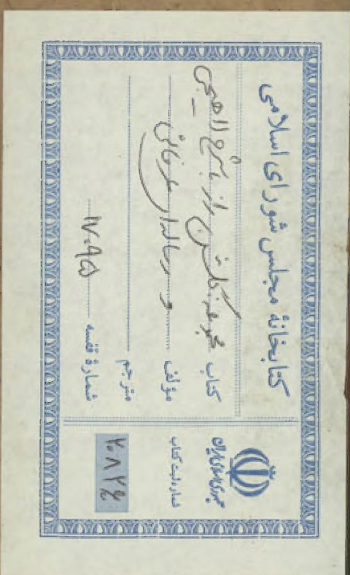 کتابخانهٔ مجلس شورای اسلامی
کتاب مجموعه گلشن راز با شرح لاهیجی
مؤلف و رساله‌ای عرفانی
مترجم
شمارهٔ قفسه ۱۷۰۹۵
جمهوری اسلامی ایران
شماره ثبت کتاب